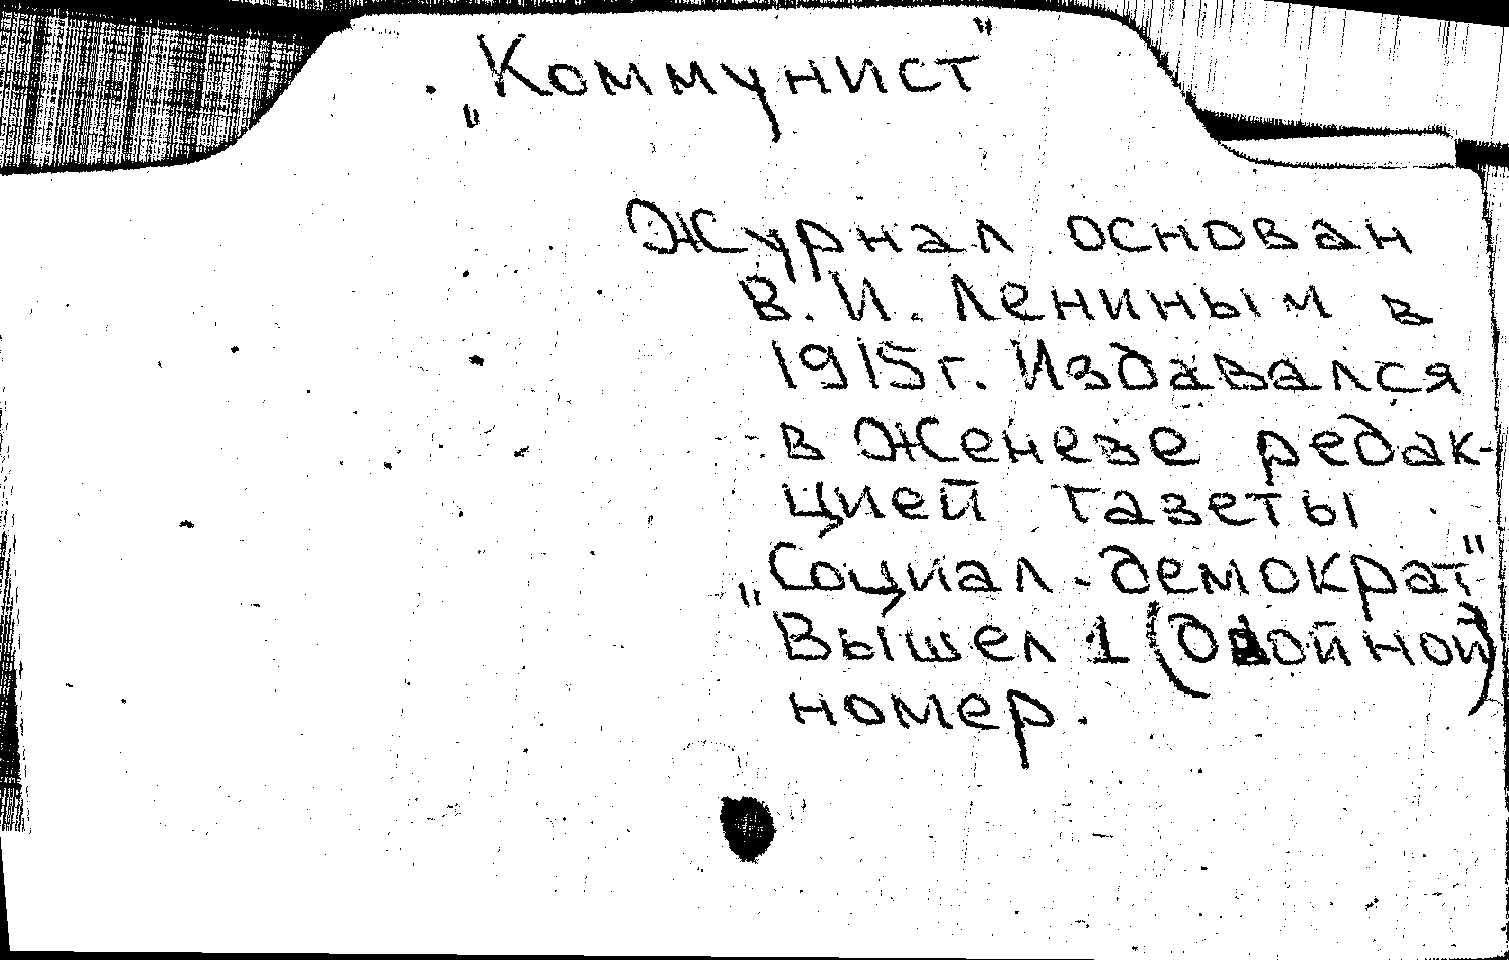 „Коммунист"
Журнал основан
В. И. Лениным в
1915г. Издавался
в Женеве редак-
цией газеты
„Социал-демократ"
Вышел 1 (двойной)
номер.